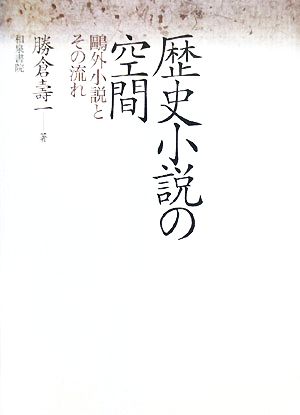 歴史小説の
空間
鷗外小説と
その流れ
勝倉壽一 著
和泉書院